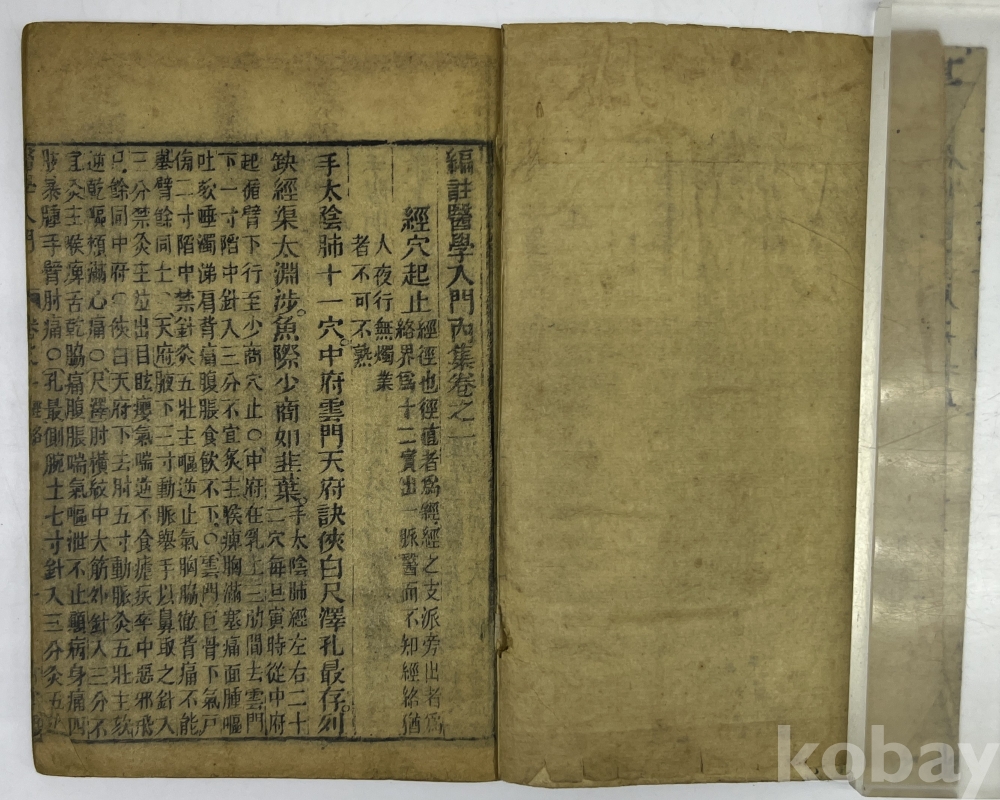 編註醫學入門內集卷之一
經穴起止
經徑也徑直者爲經經之支派旁出者爲
絡界爲十二實出一脈醫而不知經絡猶
人夜行無燭業
者不可不熟
手太陰肺十一穴中府雲門天府訣俠白尺澤孔最存列
缺經集太淵涉魚際少商如韭葉
手太陰肺經左右二十
二穴每旦寅時從中府
起循臂下行至少商穴止○中府在乳上三肋間去雲門
下一寸陷中針入三分不宜灸主喉痺胸滿塞痛面腫嘔
吐咳唾濁涕肩背痛腹脹食飲不下○雲門巨骨下氣戶
傍二寸陷中禁針灸五壯主嘔逆上氣胸脇徹背痛不能
舉臂餘同上○天府腋下三寸動脈舉手以鼻取之針入
三分禁灸主泣出目眩癭氣喘逆不食瘧疾卒中惡邪飛
尸餘同中府○俠白天府下去肘五寸動脈灸五壯主咳
逆乾嘔煩滿心痛○尺澤肘橫紋中大筋外針入三分不
宜灸主喉痺舌乾脇痛腹脹喘氣嘔泄不止癲病身痛四
肢暴腫手臂肘痛○孔最側腕上七寸針入三分灸五
醫學入門
卷之一
經絡
一
kobay